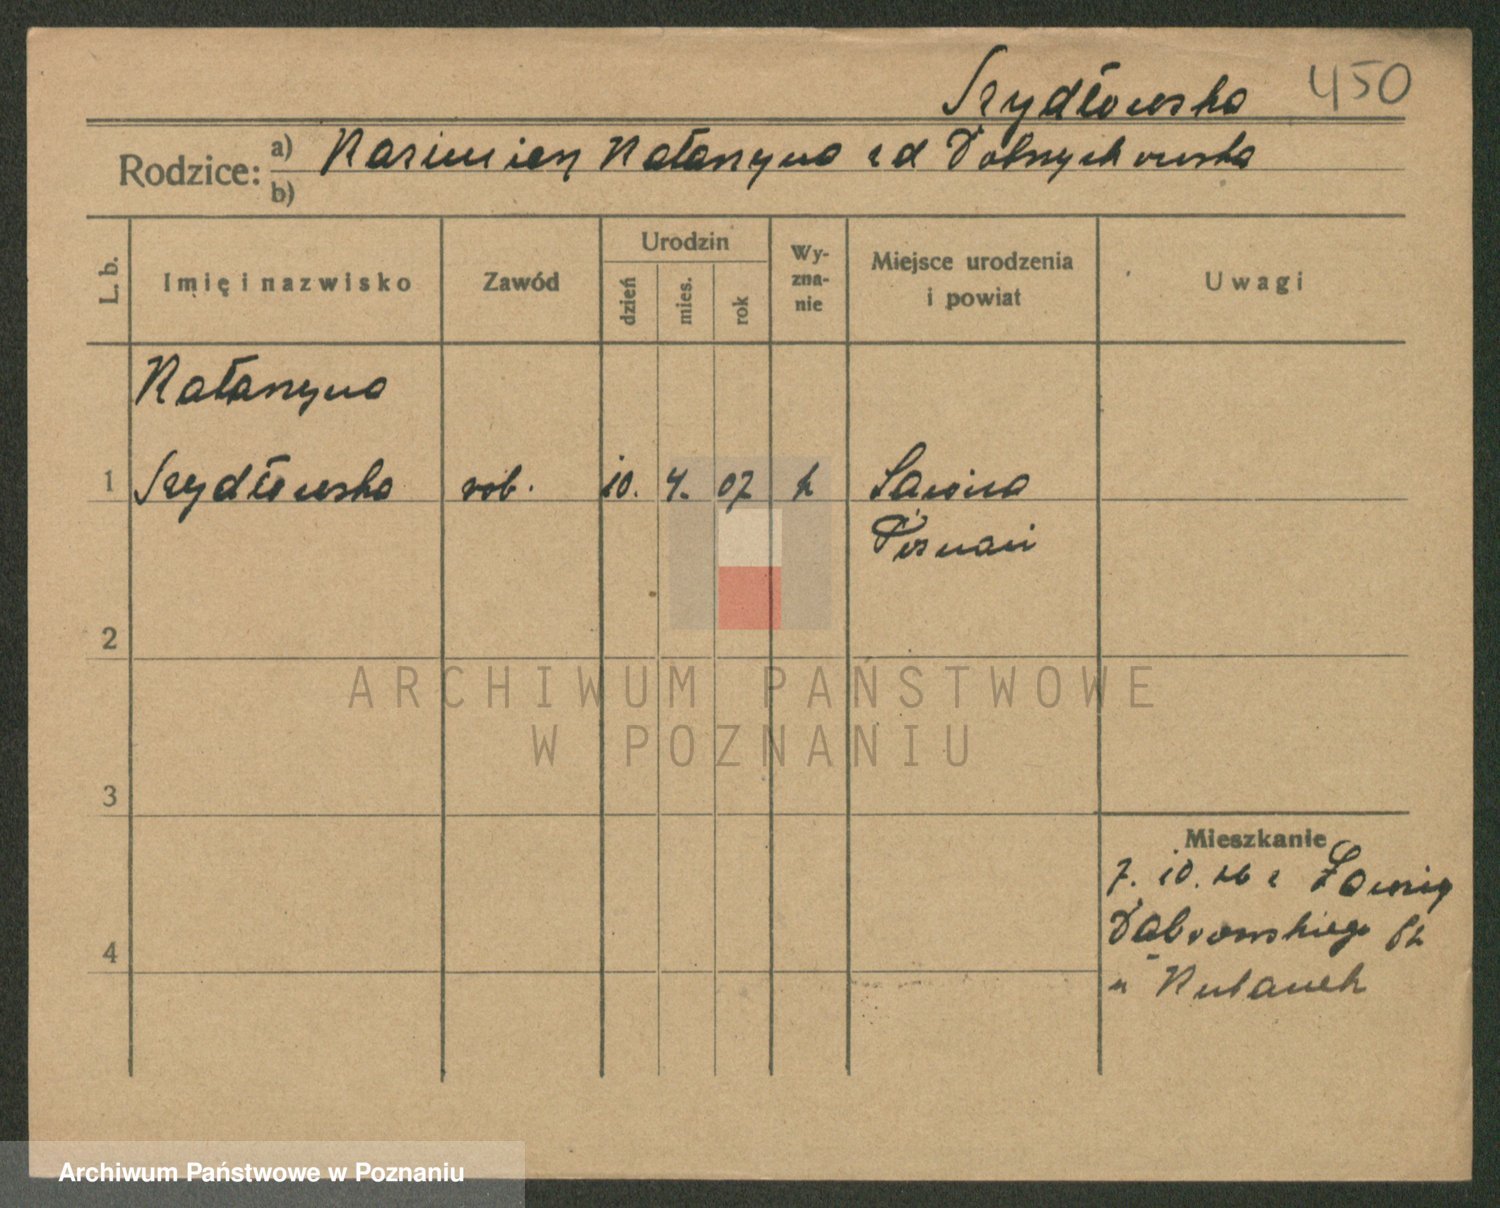 Szydłowska 450
Rodzice: a) Kazimierz Katarzyna z d Dobrzychowska
b)
L. b.
Imię i nazwisko
Zawód
Urodzin
dzień
mies.
rok
Wy-
zna-
nie
Miejsce urodzenia
i powiat
Uwagi
Katarzyna
1 Szydłowska rob. 10. 4. 07 k Ławica
Poznań
2
ARCHIWUM PAŃSTWOWE
W POZNANIU
3
Mieszkanie
7. 10. 26 z
Dąbrowskiego
4
u
Archiwum Państwowe w Poznaniu